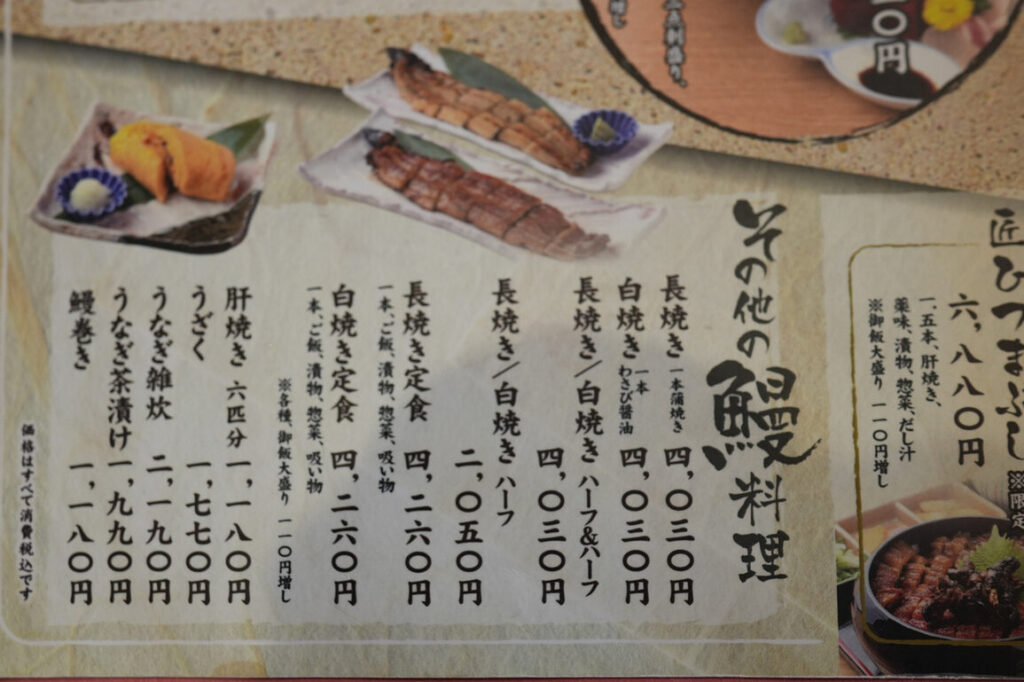 匠ひつまぶし ※限定
六,八八〇円
一.五本、肝焼き、
薬味、漬物、惣菜、だし汁
※御飯大盛り 一一〇円増し
〇円
その他の鰻料理
長焼き 一本蒲焼き 四,〇三〇円
白焼き 一本わさび醤油 四,〇三〇円
長焼き/白焼き ハーフ&ハーフ
四,〇三〇円
長焼き/白焼き ハーフ
二,〇五〇円
長焼き定食 四,二六〇円
一本、ご飯、漬物、惣菜、吸い物
白焼き定食 四,二六〇円
一本、ご飯、漬物、惣菜、吸い物
※各種、御飯大盛り 一一〇円増し
肝焼き 六匹分 一,一八〇円
うざく 一,七七〇円
うなぎ雑炊 二,一九〇円
うなぎ茶漬け 一,九九〇円
鰻巻き 一,一八〇円
価格はすべて消費税込です